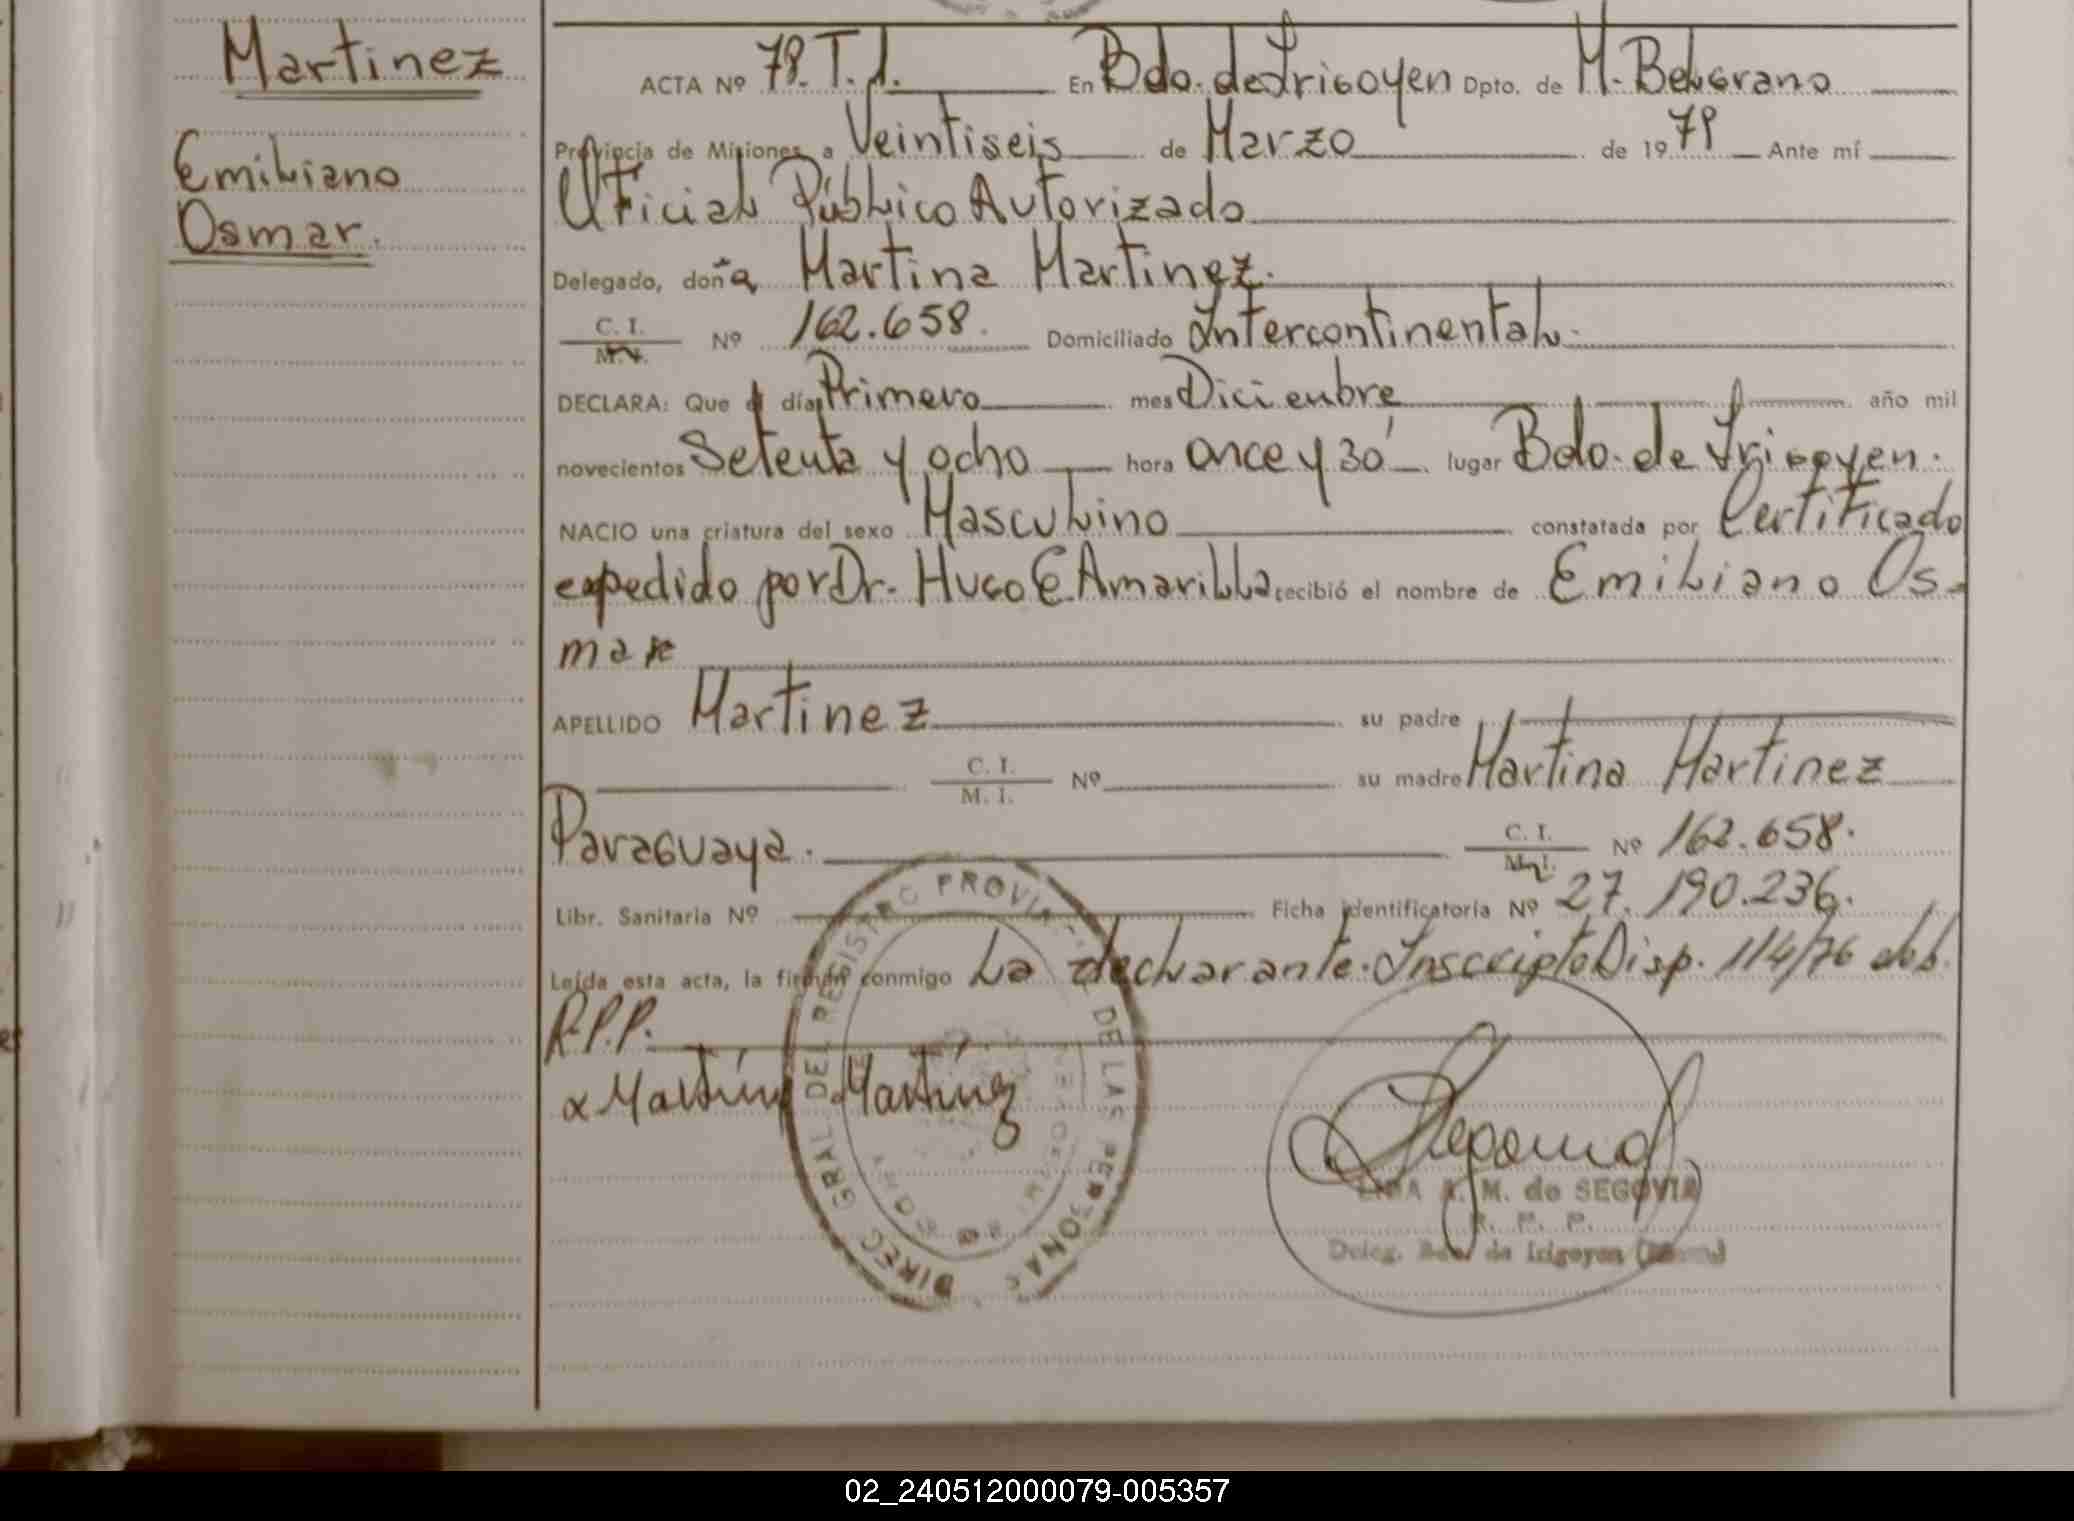 Martinez
Emiliano
Osmar.
ACTA Nº 78. T. I. En Bdo. de Irigoyen Dpto. de M. Belgrano
Provincia de Misiones a Veintiseis de Marzo de 1979 Ante mí
Oficial Público Autorizado
Delegado, doña Martina Martinez.
C. I. Nº 162.658. Domiciliado Intercontinental.
M. I.
DECLARA: Que el día Primero mes Diciembre año mil
novecientos Setenta y ocho hora once y 30' lugar Bdo. de Irigoyen.
NACIO una criatura del sexo Masculino constatada por Certificado
expedido por Dr. Hugo E Amarilla recibió el nombre de Emiliano Os-
mar
APELLIDO Martinez su padre
C. I. Nº su madre Martina Martinez
M. I.
Paraguaya. C. I. Nº 162.658.
M. I.
Libr. Sanitaria Nº Ficha identificatoria Nº 27.190.236.
Leída esta acta, la firman conmigo La declarante. Inscripto Disp. 114/76 del
R.P.P.
x Martina Martinez
DIREC. GRAL DEL REGISTRO PROVINCIAL DE LAS PERSONAS
Segovia
A. M. de SEGOVIA
R. P. P.
Deleg. Bdo. de Irigoyen
02_240512000079-005357